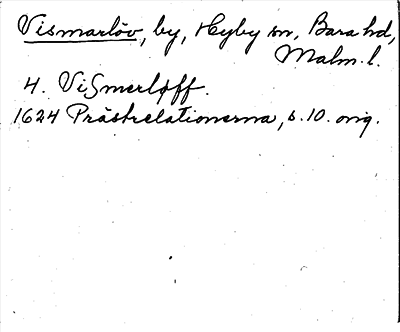 Vismarlöv, by, Hyby sn, Bara hd,
Malm. l.
4. ViSmerløff.
1624 Prästrelationerna, s. 10. orig.